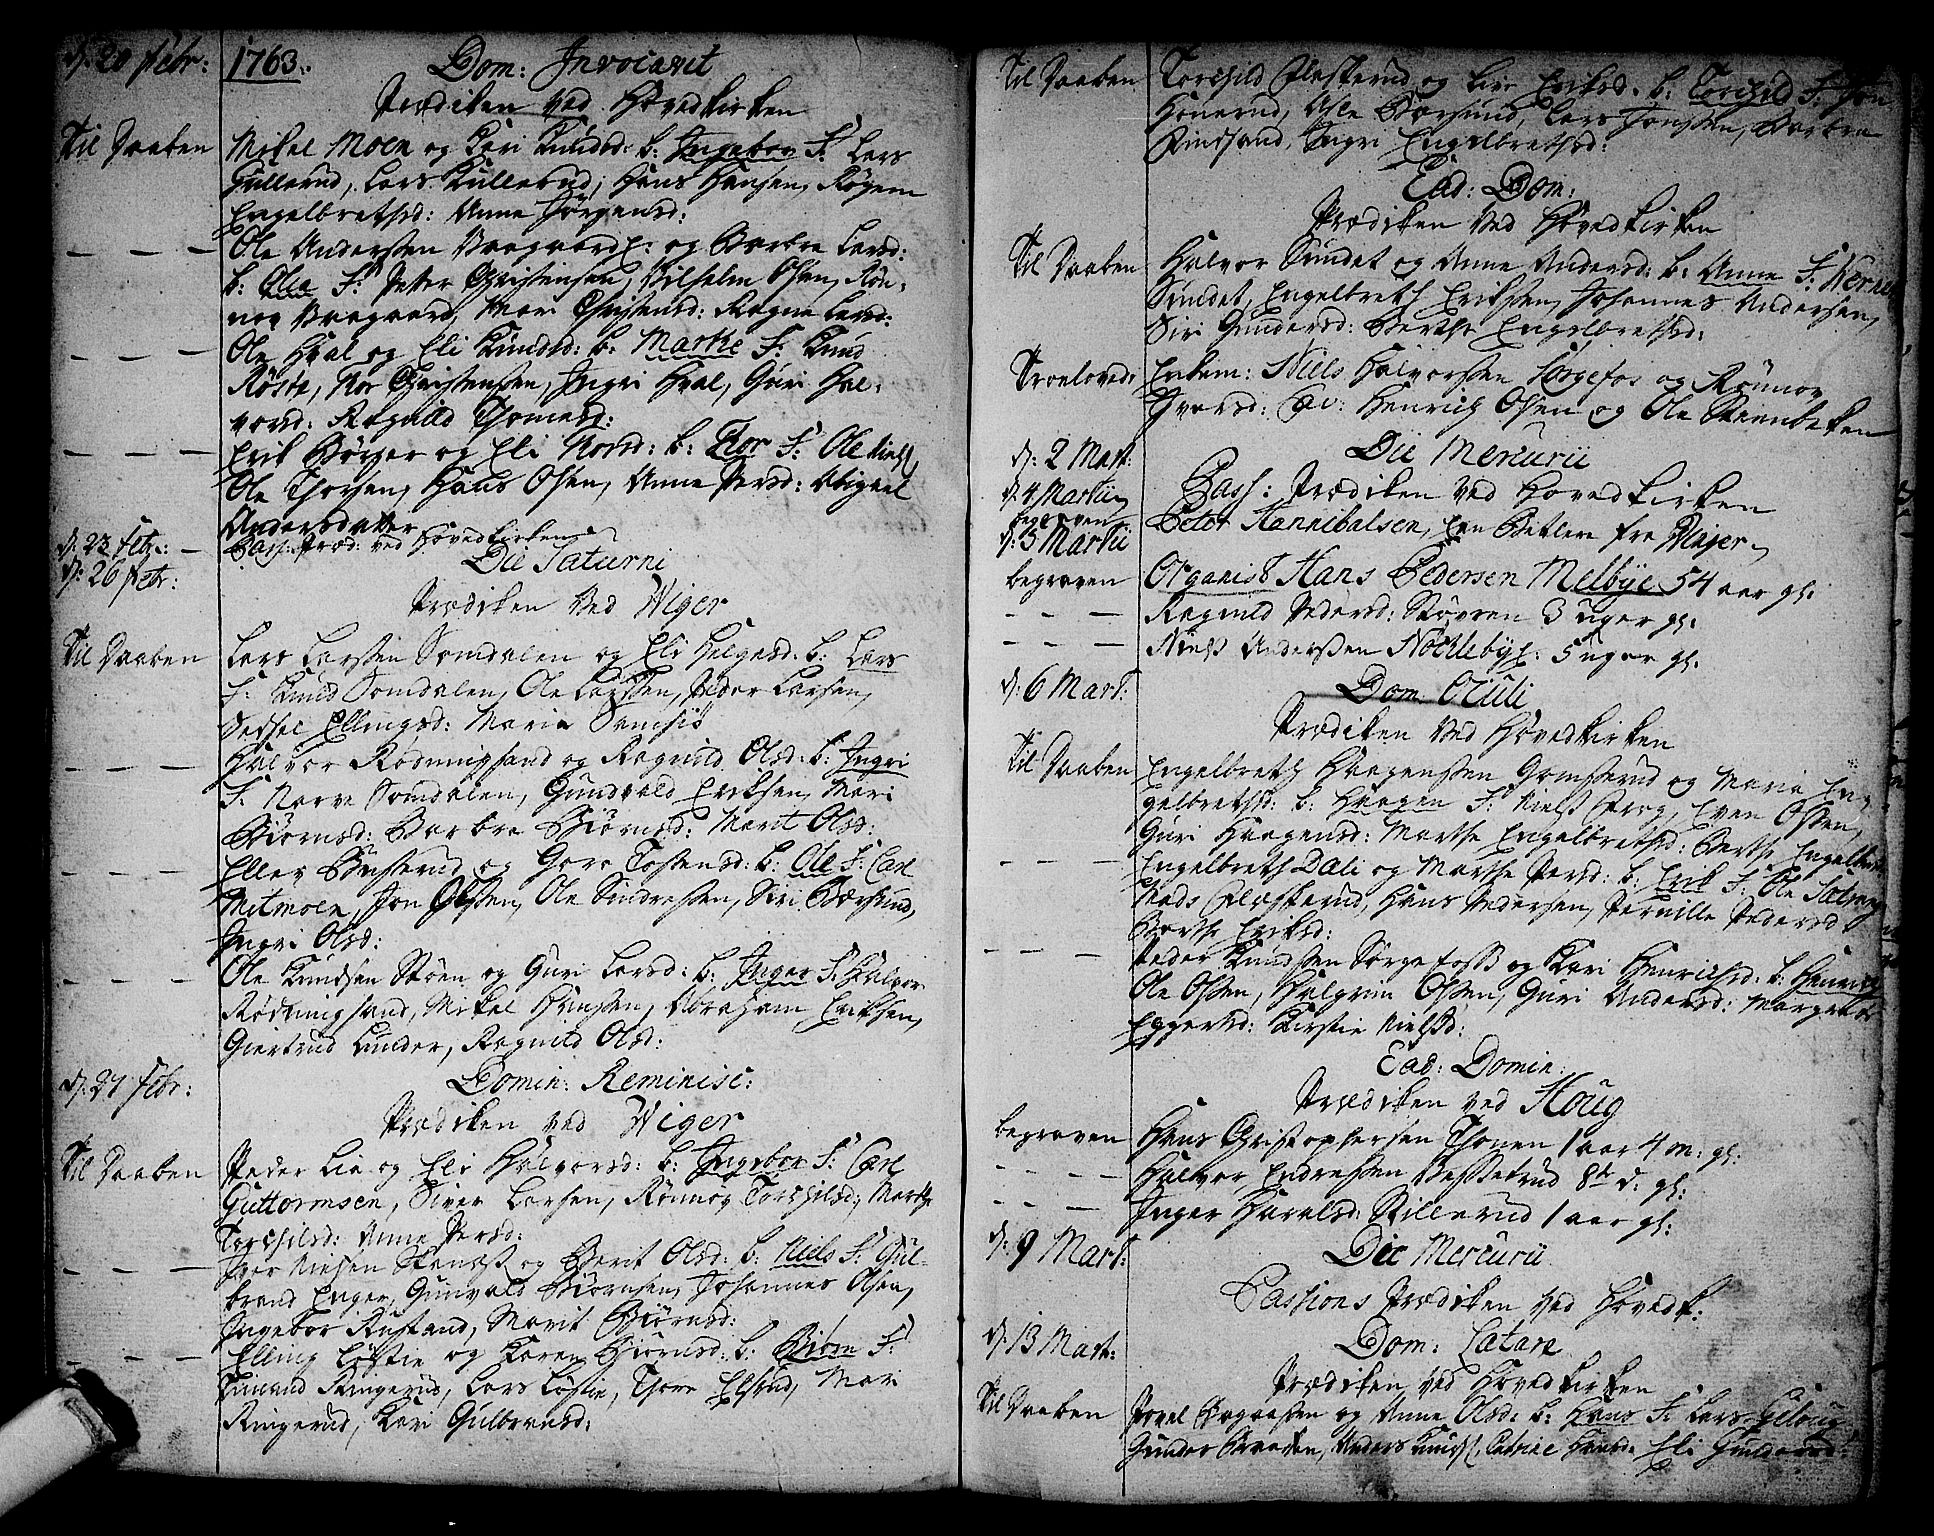 d: 20 Febr: 1763. Dom: Invocavit
Prædiken ved Hovedkirken
Til Daaben Mikel Moen og Kari Knudsd: b: Ingebor F: Lars
Gullerud, Lars Kullerud, Hans Hansen,
Engelbretsd: Anne Jörgensd:
— — — Ole Anderssen og Barbra Larsd:
b: Ole F: Petter Christensen, Vilhelm Olsen, Rön-
nog Mari Christensd: Ragne Larsd:
— — — Ole Hval og Eli Knudsd: b: Marthe F: Knud
Röste, Nor Christensen, Ingri Hval, Guri Hal-
vorsd: Ragnild Thomesd:
— — — Erik Börger og Eli Norsd: b: Nor F: Ole Niels
Ole Thorsen, Hans Olsen, Anne Persd: Abigael
Andersdatter
d: 23 Febr: — Pass: Præd: ved Hovedkirken
d: 26 Febr: Die Saturni
Prædiken ved Wiger
Til Daaben Lars Larssen Somdalen og Eli Helgesd: b: Lars
F: Knud Somdalen, Ole Larssen, Peder Larsen,
Sidsel Ellingsd: Maria Semsiö
— — — Halvor Rödningsand og Ragnild Olsd: b: Ingri
F: Narve Somdalen, Gundvald Eriksen, Mari
Biörnsd: Barbra Biörnsd: Marit Olsd:
— — — Ellev og Goro Tostensd: b: Ole F: Carl
Mitmoen, Jon Olssen, Ole Sindressen, Siri Bærsund,
Ingri Olsd:
— — — Ole Knudsen Stöen og Guri Larsd: b: Inger F: Halvor
Rödningsand, Mikel Hansen, Abraham Eriksen,
Giertrud Lunder, Ragnild Olsd:
d: 27 Febr: Domin: Reminisc:
Prædiken ved Wiger
Til Daaben Peder Lia og Eli Halvorsd: b: Ingebor F: Carl
Guttormsen, Siver Larsen, Rönnog Torchilsd: Marthe
Torchilsd: Anne Persd:
— — — Iver Nielsen og Berit Olsd: b: Niels F: Gul-
brand Enger, Gunvald Biörnsen, Johannes Olsen,
Ingebor Rustand, Marit Biörnsd:
— — — Elling Löstie og Karen Biörnsd: b: Biörn F:
Ringerud, Lars Löstie, Thore Elsrud, Mari
Ringerud, Kari Gulbransd:
Til Daaben Torchild Flaskerud og Live Eriksd: b: Torchild F: Jon
Honerud, Ole Bærsund, Lars Jonssen, Barbra
Rindsand, Ingri Engelbretsd:
Ead: Dom:
Prædiken ved Hovedkirken
Til Daaben Halvor Sundet og Anne Andersd: b: Anne F:
Sundet, Engelbreth Erikssen, Johannes Andersen,
Siri Gundersd: Berthe Engelbretsd:
Troeloved: Enkem: Niels Halvorssen Sørgefos og Rönnov
Iversd: Cav: Henrich Olsen og Ole Steenbeken
d: 2 Mart: Die Mercurii
Pass: Prædiken ved Hovedkirken
d: 4 Martii begraven Peter Hannibalsen, en Betler fra Vinjer
d: 5 Martii
begraven Organist Hans Pedersen Melbye 54 aar gl:
— — — Ragnild Pedersd: Stövren 3 uger gl:
— — — Niels Anderssen Nöklebye 5 uger gl:
d: 6 Mart: Dom Oculi
Prædiken ved Hovedkirken
Til Daaben Engelbreth Haagenssen Gomserud og Maria En-
gelbretsd: b: Haagen F: Niels Prog, Even Olssen,
Guri Haagensd: Marthe Engelbretsd: Berthe Engelbretsd:
— — — Engelbreth Dali og Marthe Persd: b: Erik F: Ole
Mads Flaskerud, Hans Pedersen, Pernille Pedersd
Berthe Eriksd:
— — — Peder Knudssen Sörgefoss og Kari Henrichsd: b: Henrich
Ole Olssen, Halgrim Olssen, Guri Andersd: Margrete
Eggertsd: Kirstie Nielsd:
Ead: Domin:
Prædiken ved Houg
begraven Hans Christophersen Thonen 1 aar 4 m: gl:
— — — Halvor Endressen 8te d: gl:
— — — Inger Haralsd: Stillerud 1 aar gl:
d: 9 Mart: Die Mercurii
Passions Prædiken ved Hovedk:
d: 13 Mart: Dom: Lætare
Prædiken ved Hovedkirken
Til Daaben Povel og Anne Olsd: b: Hans F: Lars
Gunder Braaten, Anders Knuds, Catrine Hansd: Eli Gundersd: